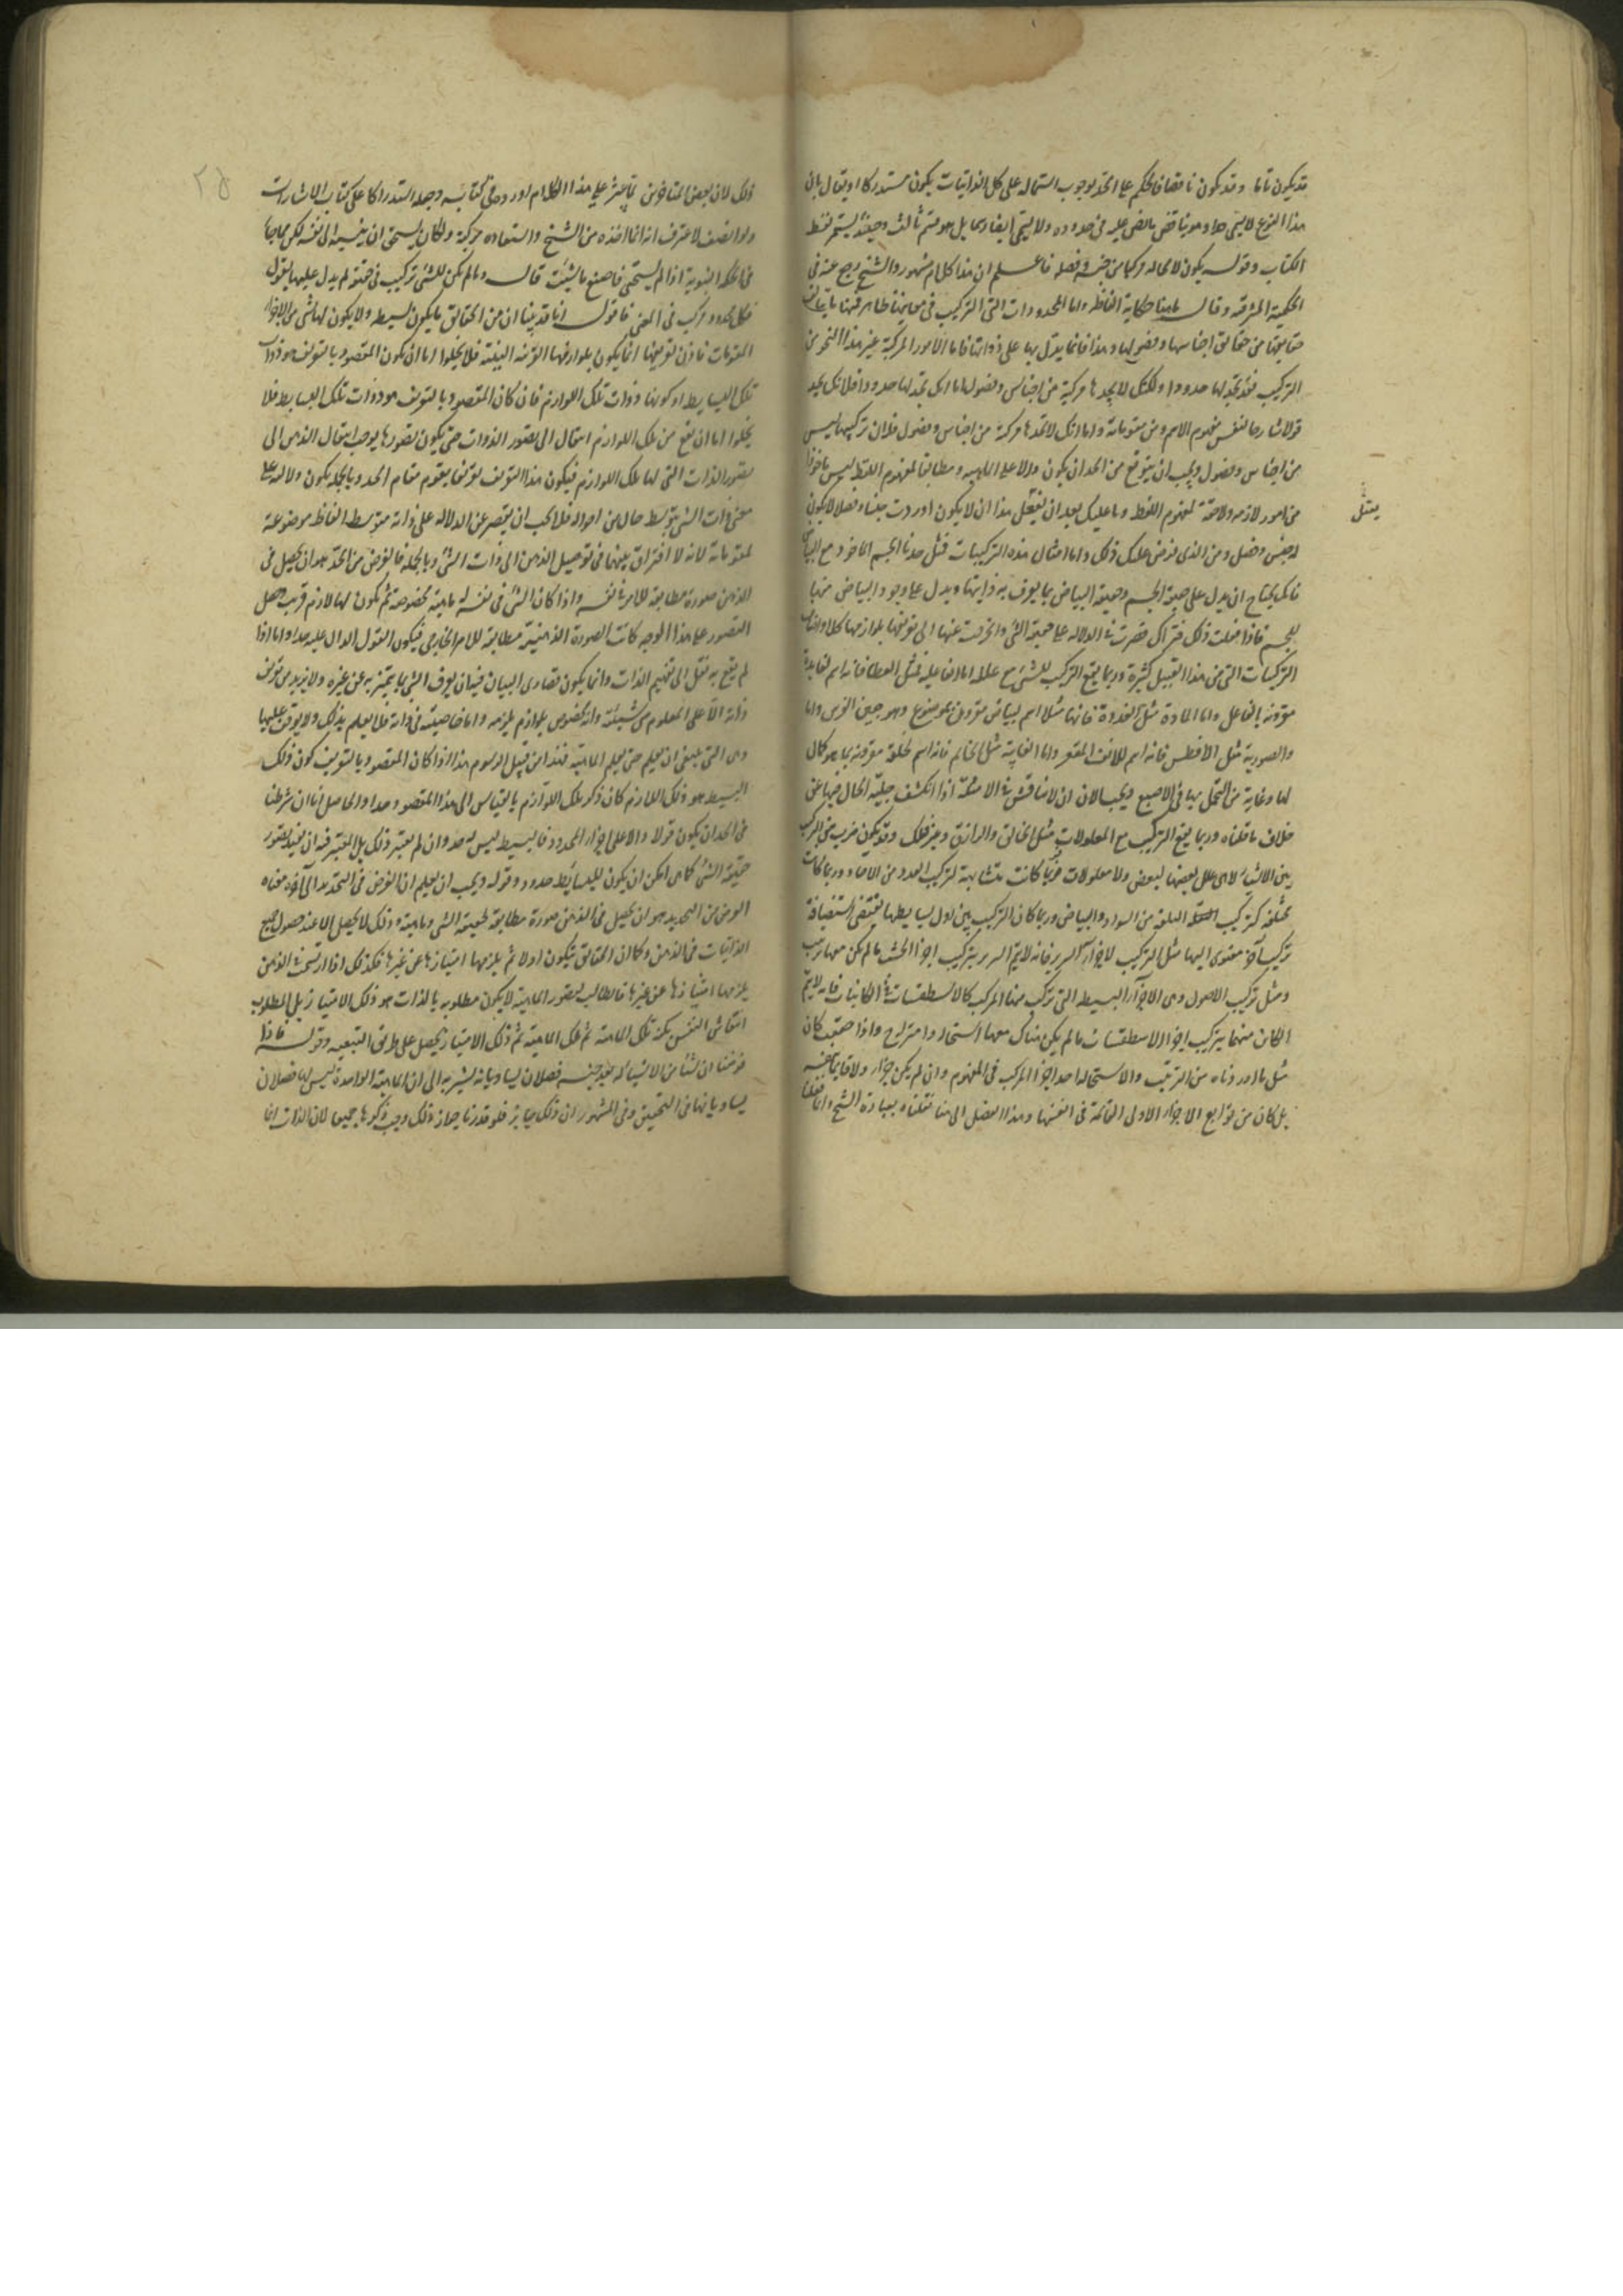 قد يكون تاما وقد يكون ناقصا فالحكم على الحد بوجوب اشتماله على كل الذاتيات يكون مستدركا او يقال بان
هذا النوع لا يسمى حدا وهو يناقض بالنص عليه في حدوده ولا يسمى ايضا رسما بل هو قسم ثالث وحينئذ يستمر فقط
الكتاب وقوله يكون لا محاله مركبا من جنسه وفصله فاعلم ان هذا كلام مشهور والشيخ رجع عنه في
الحكمة المشرقية وقال ما هذا حكاية الفاظه واما المحدودات التي التركيب في معانيها ظاهر فمنها ما يتالف
حقايقها من حقايق اجناسها وفصولها وهذا فانما يدل بها على ذواتها فاما الامور المركبة غير هذا النحو من
التركيب فقد تجد لها حدودا ولكنك لا تجدها مركبة من اجناس وفصول اما انك تجد لها حدودا فلانك تجد
قولا شارحا لنفس مفهوم الاسم ومن مقوماته واما انك لا تجدها مركبة من اجناس وفصول فلان تركيبها ليس
من اجناس وفصول ويجب ان يتوقع من الحد ان يكون دالا على الماهية ومطابقا لمفهوم اللفظ ليس ماخوذا
من امور لازمة ولاحقة لمفهوم اللفظ وما عليك بعد ان تفعل هذا ان لا يكون اوردت جنسا وفصلا لا يكون
له جنس وفصل ومن الذي فرض عليك ذلك واما امثال هذه التركيبات فمثل حدنا الجسم الماخوذ مع البياض
يمثل
فانك تحتاج ان يدل على حقيقة الجسم وحقيقة البياض بما يعرف به ذاتيتها ويدل على وجود البياض منها
للجسم فاذا فعلت ذلك فتراك قصرت في الدلالة على حقيقة الشي وانحرفت عنها الى تعريفها بلوازمها كلا وامثال
التركيبات التي من هذا القبيل كثيرة وربما يقع التركيب للشي مع علله اما الفاعلية فمثل العطا فانه اسم لفايدة
مقرونة بالفاعل واما المادة مثل القرحة فانها مثلا اسم لبياض مقرون بموضوع وهو جبين الفرس واما
والصورية مثل الافطس فانه اسم للانف المقعر واما الغاية مثل الخاتم فانه اسم لحلقة مقرونة بما هو كمال
لها وغاية من التجمل بها في الاصبع ويجب الان ان لا نناقش في الامثلة اذا انكشف جلية الحال فيها عن
خلاف ما قلناه وربما يقع التركيب مع المعلولات مثل الخالق والرازق وغير ذلك وقد يكون ضرب من التركيب
بين الاشياء لا هي علل بعضها لبعض ولا معلولات فربما كانت متشابهة كتركيب العدد من الاحاد وربما كانت
مختلفة كتركيب البلقة من السواد والبياض وربما كان التركيب بين اول بسايطها يقتضي استضافة
تركيب آخر معنوي اليها مثل التركيب لاجزاء السرير فانه لا يتم السرير بتركيب اجزا الخشب ما لم يكن معها ترتيب
ومثل تركيب الاصول وهي الاجزاء البسيطة التي تركب منها المركب كالاسطقسات في الكاينات فانه لا يتم
الكاين منها بتركيب اجزا الاسطقسات ما لم يكن هناك معها استحالة وامتزاج واذا حققت كان
مثل ما اوردناه من الترتيب والاستحالة احد اجزا المركب في المفهوم وان لم يكن جزا ولا قايما بنفسه
بل كان من توابع الاجزاء الاولى القايمة في انفسها وهذا الفصل الى هنا نقلناه بعبارة الشيخ وانما فعلنا
٢٥
ذلك لان بعض المتاخرين لما عثر على هذا الكلام اورده في كتابه وجعله استدراكا على كتاب الاشارات
ولو انصف لاعترف انه انما اخذه من الشيخ واستفاده من كتبه ولكان يستحيي ان ينسبه الى نفسه لكن مما جا
في الحكم النبوية اذا لم تستحي فاصنع ما شئت قال وما لم يكن للشي تركيب في حقيقته لم يدل عليها بقول
فكل محدود مركب في المعنى فاقول انا قد بينا ان من الحقايق ما يكون بسيطه ولا يكون لها شي من الاجزاء
المقومات فاذن تعريفها انما يكون بلوازمها القريبة البينة فلا يخلوا اما ان يكون المقصود بالتعريف هو ذوات
تلك البسايط او كونها ذوات تلك اللوازم فان كان المقصود بالتعريف هو ذوات تلك البسايط فلا
يخلوا اما ان يقع من تلك اللوازم انتقال الى تصور الذوات حتى يكون تصورها يوجب انتقال الذهن الى
تصور الذات التي لها تلك اللوازم فيكون هذا التعريف تعريفا يقوم مقام الحد وبالجملة يكون دلالته على
معنى ذات الشي بتوسط حال من احواله فلا يجب ان يقصر عن الدلالة على ذاته بتوسط الفاظ موضوعة
لمقوماته لانه لا افتراق بينهما في توصيل الذهن الى ذات الشي وبالجملة فالغرض من الحد هو ان يحصل في
الذهن صورة مطابقة للامر في نفسه واذا كان الشي في نفسه له ماهية مخصوصة ثم يكون لها لازم قريب وحصل
التصور على هذا الوجه كانت الصورة الذهنية مطابقة للامر الخارجي فيكون القول الدال عليه حدا واما اذا
لم يقع به نقل الى تفهيم الذات وانما يكون قصارى البيان فيه ان يعرف الشي بما يتميز به عن غيره ولا يزيد من تعريف
ذاته الا على المعلوم من شيئيته وانه مخصوص بلوازم يلزمه واما خاصيته في ذاته فلا يعلم بذلك ولا يوقف عليها
وهي التي ينبغي ان يعلم حتى يعلم الماهية فهذا من قبيل الرسوم هذا اذا كان المقصود بالتعريف كون ذلك
البسيط هو ذلك اللازم كان ذكر تلك اللوازم بالقياس الى هذا المقصود حدا والحاصل انا ان شرطنا
في الحد ان يكون قولا دالا على اجزاء المحدود فالبسيط ليس له حد وان لم نعتبر ذلك بل المعتبر فيه ان يفيد تصور
حقيقة الشي كما هي امكن ان يكون للبسايط حدود وقوله ويجب ان يعلم ان الغرض في التحديد الى آخره معناه
الغرض من التحديد هو ان يحصل في الذهن صورة مطابقة لحقيقة الشي وماهيته وذلك لا يحصل الا عند حصول جميع
الذاتيات في الذهن وكما ان الحقايق تتكون اولا ثم يلزمها امتيازها عن غيرها فكذلك اذا ارتسخت في الذهن
يلزمها امتيازها عن غيرها فالطالب لتصور الماهية لا يكون مطلوبه بالذات هو ذلك الامتياز بل المطلوب
انتقاش النفس بكنه تلك الماهية ثم تلك الماهية ثم ذلك الامتياز يحصل على طريق التبعية وقوله فاذا
فرضنا ان شيا من الاشياء له بعد جنسه فصلان يساويانه يشير به الى ان الماهية الواحدة ليس لها فصلان
يساويانها في التحقيق وفي المشهور ان ذلك جايز فلو قدرنا جواز ذلك وجب ذكرها جميعا لان الذات انما